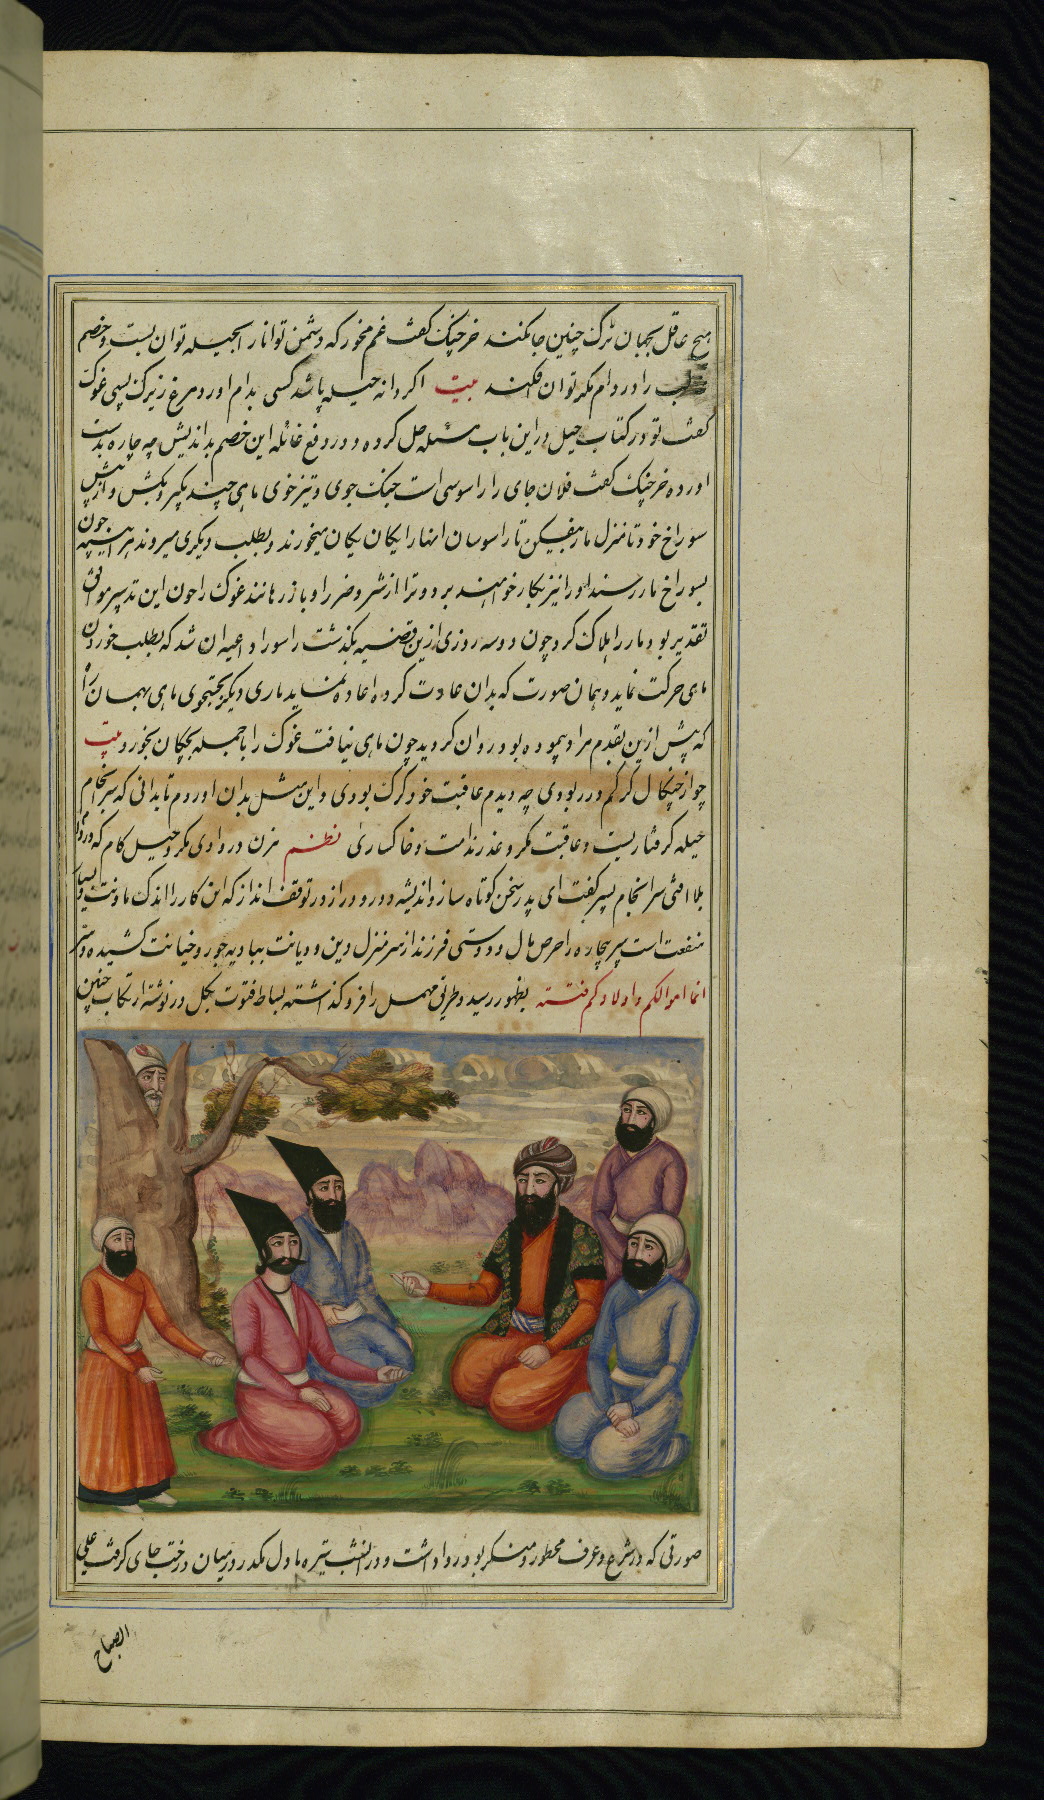 هیچ عاقل بجهان ترک چنین جا نکند خرچنک کفت غم مخور که دشمن توانا را بحیله توان بست و خصم
را در دام مکر توان افکند بیت اکر دانه حیله پاشد کسی بدام اورد مرغ زیرک بسی غوک
کفت تو در کتاب حیل در این باب مسئله حل کرده و در دفع غائله این خصم بداندیش چه چاره بدست
اورده خرچنک کفت فلان جای راسوسی است جنک جوی و تیزخوی ماهی چند بکیر و بکش و از پیش
سوراخ خود تا منزل مار بیفکن تا راسو سان انها را یکان یکان میخورند و بطلب دیکری میروند هر اینه چون
بسوراخ مار رسند او را نیز بکار خواهند برد و ترا از شر و ضرر او باز رهانند غوک را چون این تدبیر موافق
تقدیر بود مار را هلاک کرد چون دو سه روزی ازین قضیه بکذشت راسو را داعیه ان شد که بطلب خوردن
ماهی حرکت نماید و همان صورت که بدان عادت کرده اعاده نماید باری دیکر بجستجوی ماهی بهمان راه
که پیش ازین بقدم مراد پیموده بود روان کردید چون ماهی نیافت غوک را با جمله بچکان بخورد بیت
چو از چنکال کرکم در ربودی چه دیدم عاقبت خود کرک بودی و این مثل بدان اوردم تا بدانی که سرانجام
حیله کرفتاریست و عاقبت مکر و غدر ندامت و خاکساری نظم مزن در وادی مکر و حیل کام که در دام
بلا افتی سرانجام پسر کفت ای پدر سخن کوتاه ساز و اندیشه دور و دراز در توقف انداز که این کار را اندک ماونت و بسیار
منفعت است پیر بیچاره را حرص مال و دوستی فرزند از سر منزل دین و دیانت ببادیه جور و خیانت کشیده و سر
انما اموالکم و اولادکم فتنه بظهور رسید و طریق مهمل را فرو کذاشته بساط فتوت بکل در نوشته ارتکاب چنین
صورتی که در شرع و عرف محظور و منکر بود روا داشت و در ان شب تیره با دل مکدر در میان درخت جای کرفت علی
الصباح